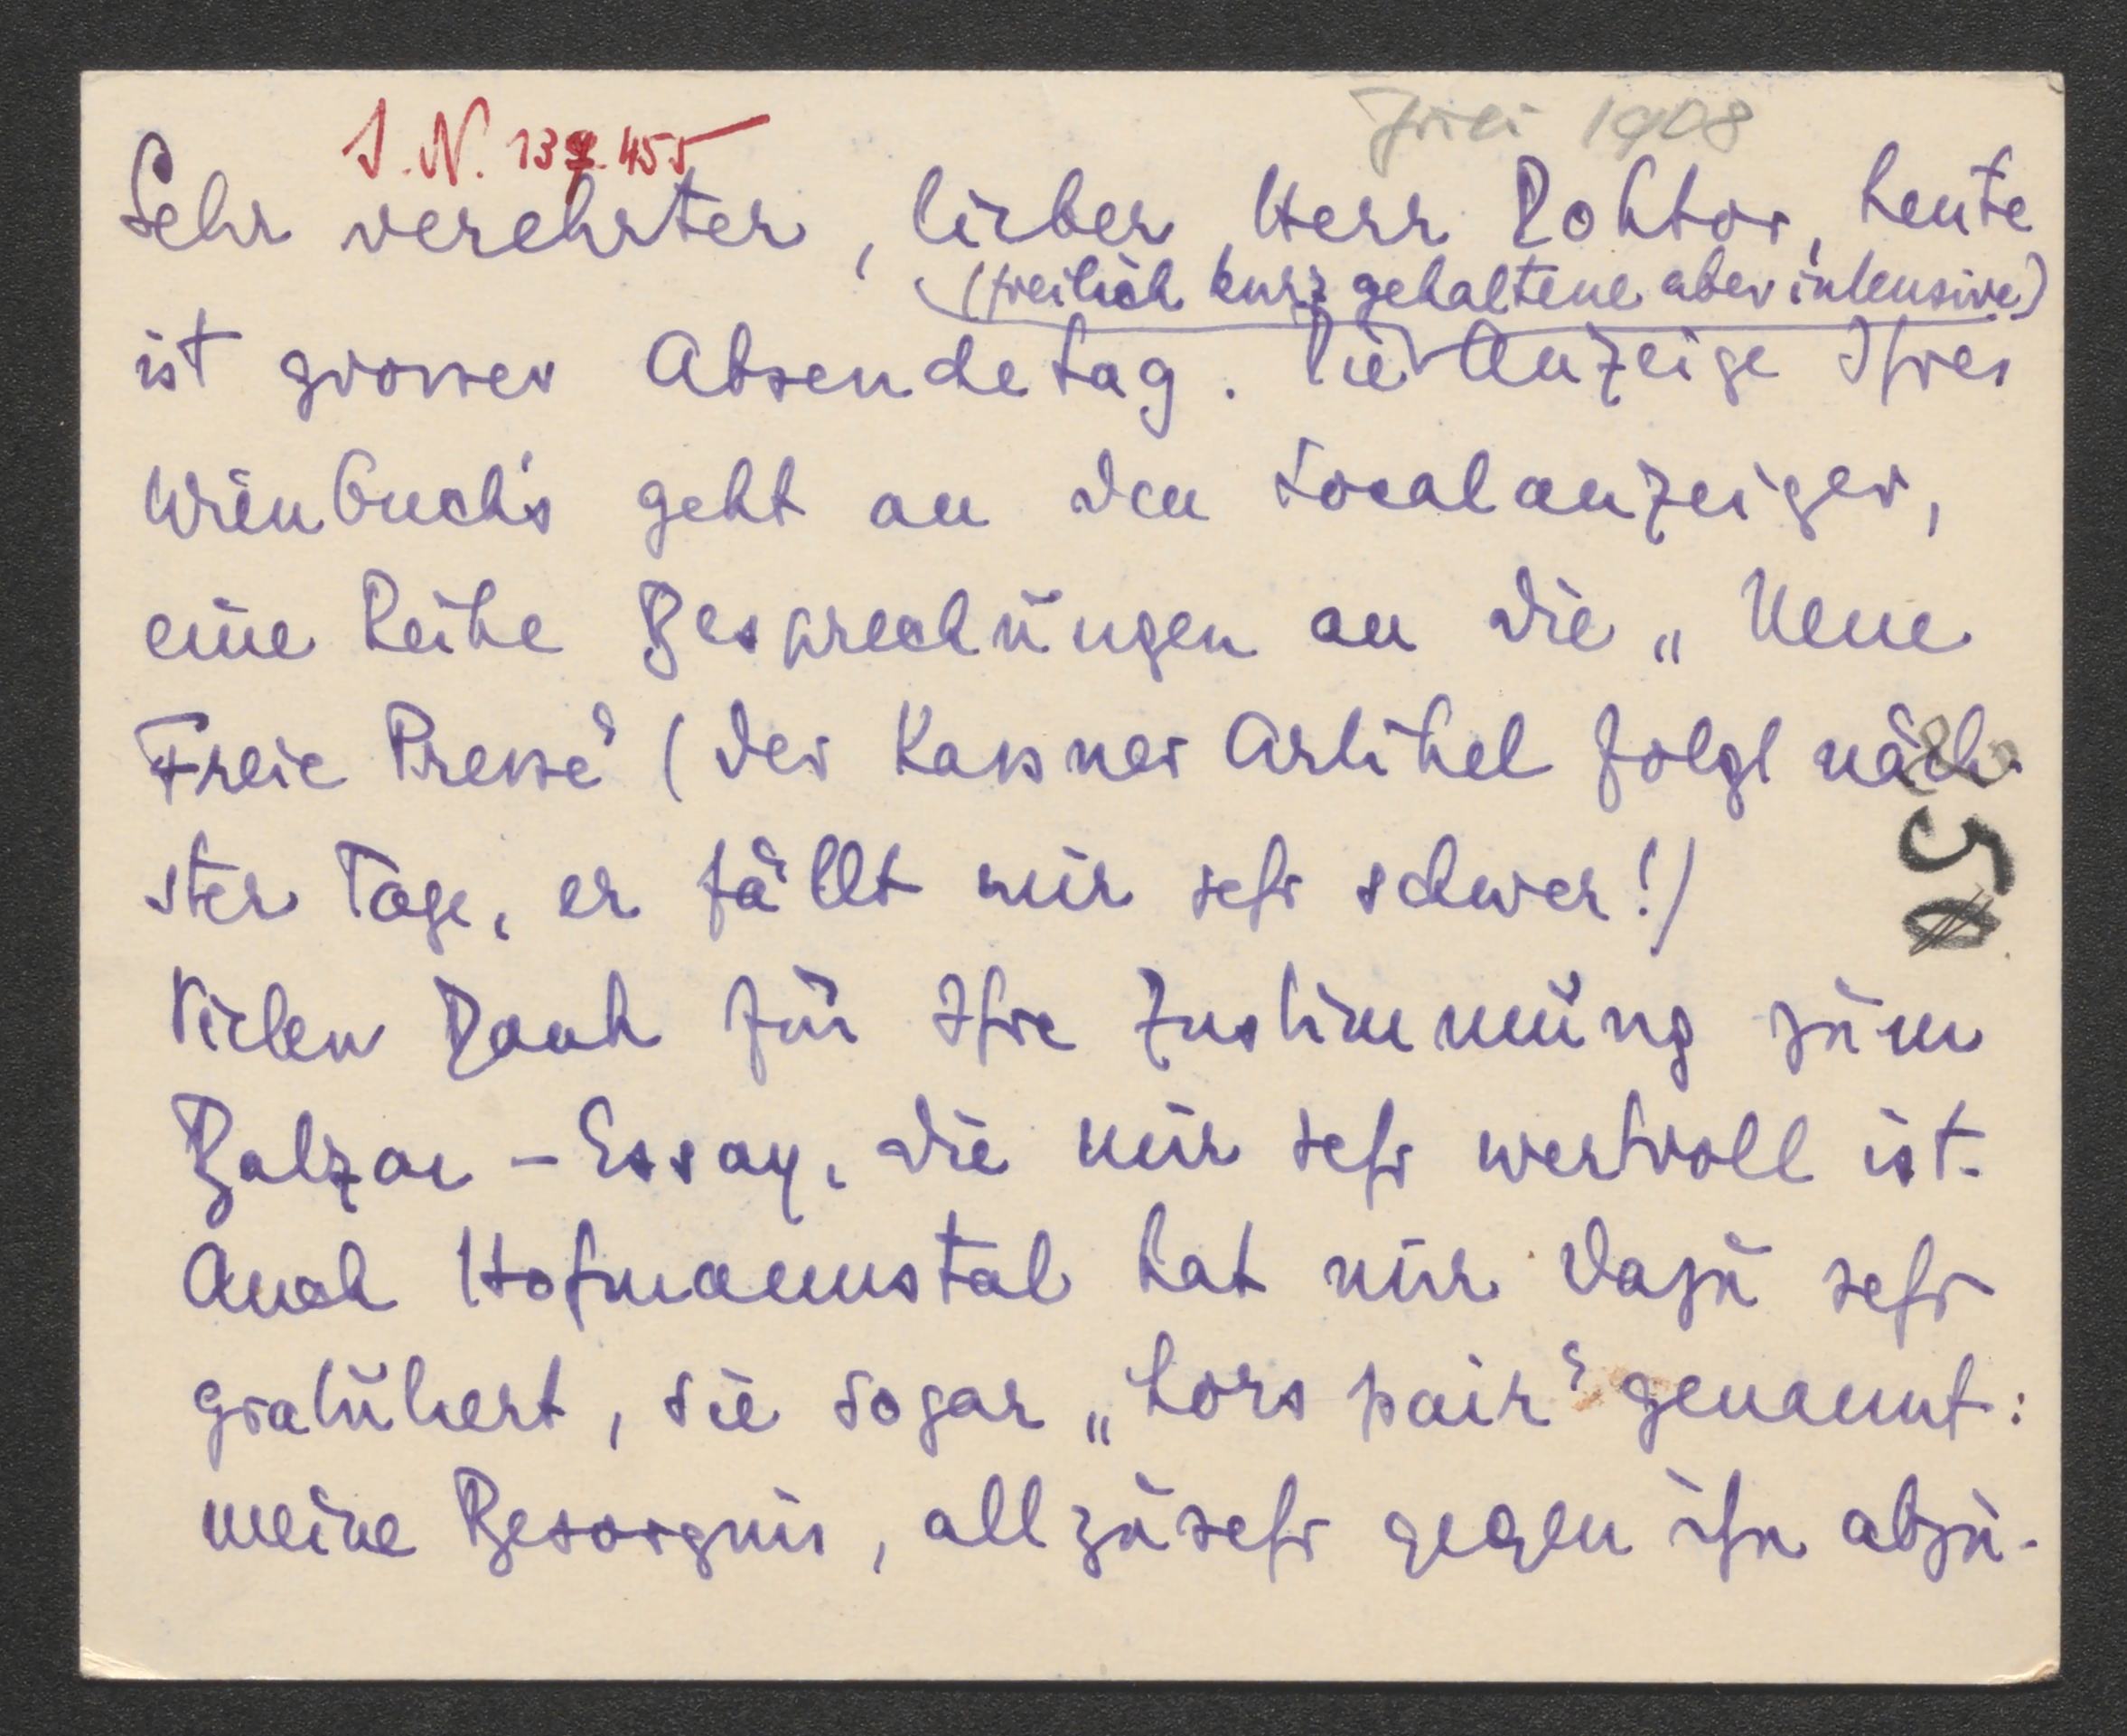 I.N. 137.455
Juli 1908
Sehr verehrter, lieber Herr Doktor, heute
(freilich kurz gehaltene aber intensive)
ist grosser Absendetag. Die Anzeige Ihres
Wienbuch's geht an den Localanzeiger,
eine Reihe Besprechungen an die „Neue
Freie Presse" (der Kassner Artikel folgt näch-
ster Tage, er fällt mir sehr schwer!)
Vielen Dank für Ihre Zustimmung zum
Balzac-Essay, die mir sehr wertvoll ist.
Auch Hofmannstal hat mir dazu sehr
gratuliert, sie sogar „hors pair" genannt:
meine Besorgnis, allzusehr gegen ihn abzu-
50